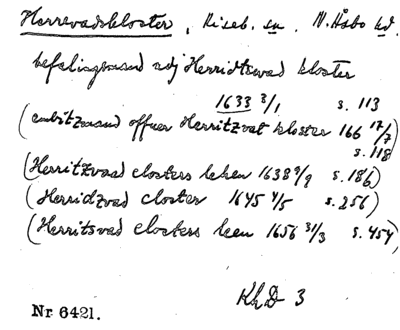 Herrevadskloster, Riseb. sn. N. Åsbo hd.
befalingsmand udj Herridtzvad kloster
1633 3/1 s. 113
(embitzmand offuer Herritzvat kloster 166 17/7
s. 118)
(Herritzvad closters lehen 1638 9/9 s. 186)
(Herridzvad closter 1645 4/5 s. 256)
(Herritsvad closters leen 1656 31/3 s. 454)
KhD 3
Nr 6421.